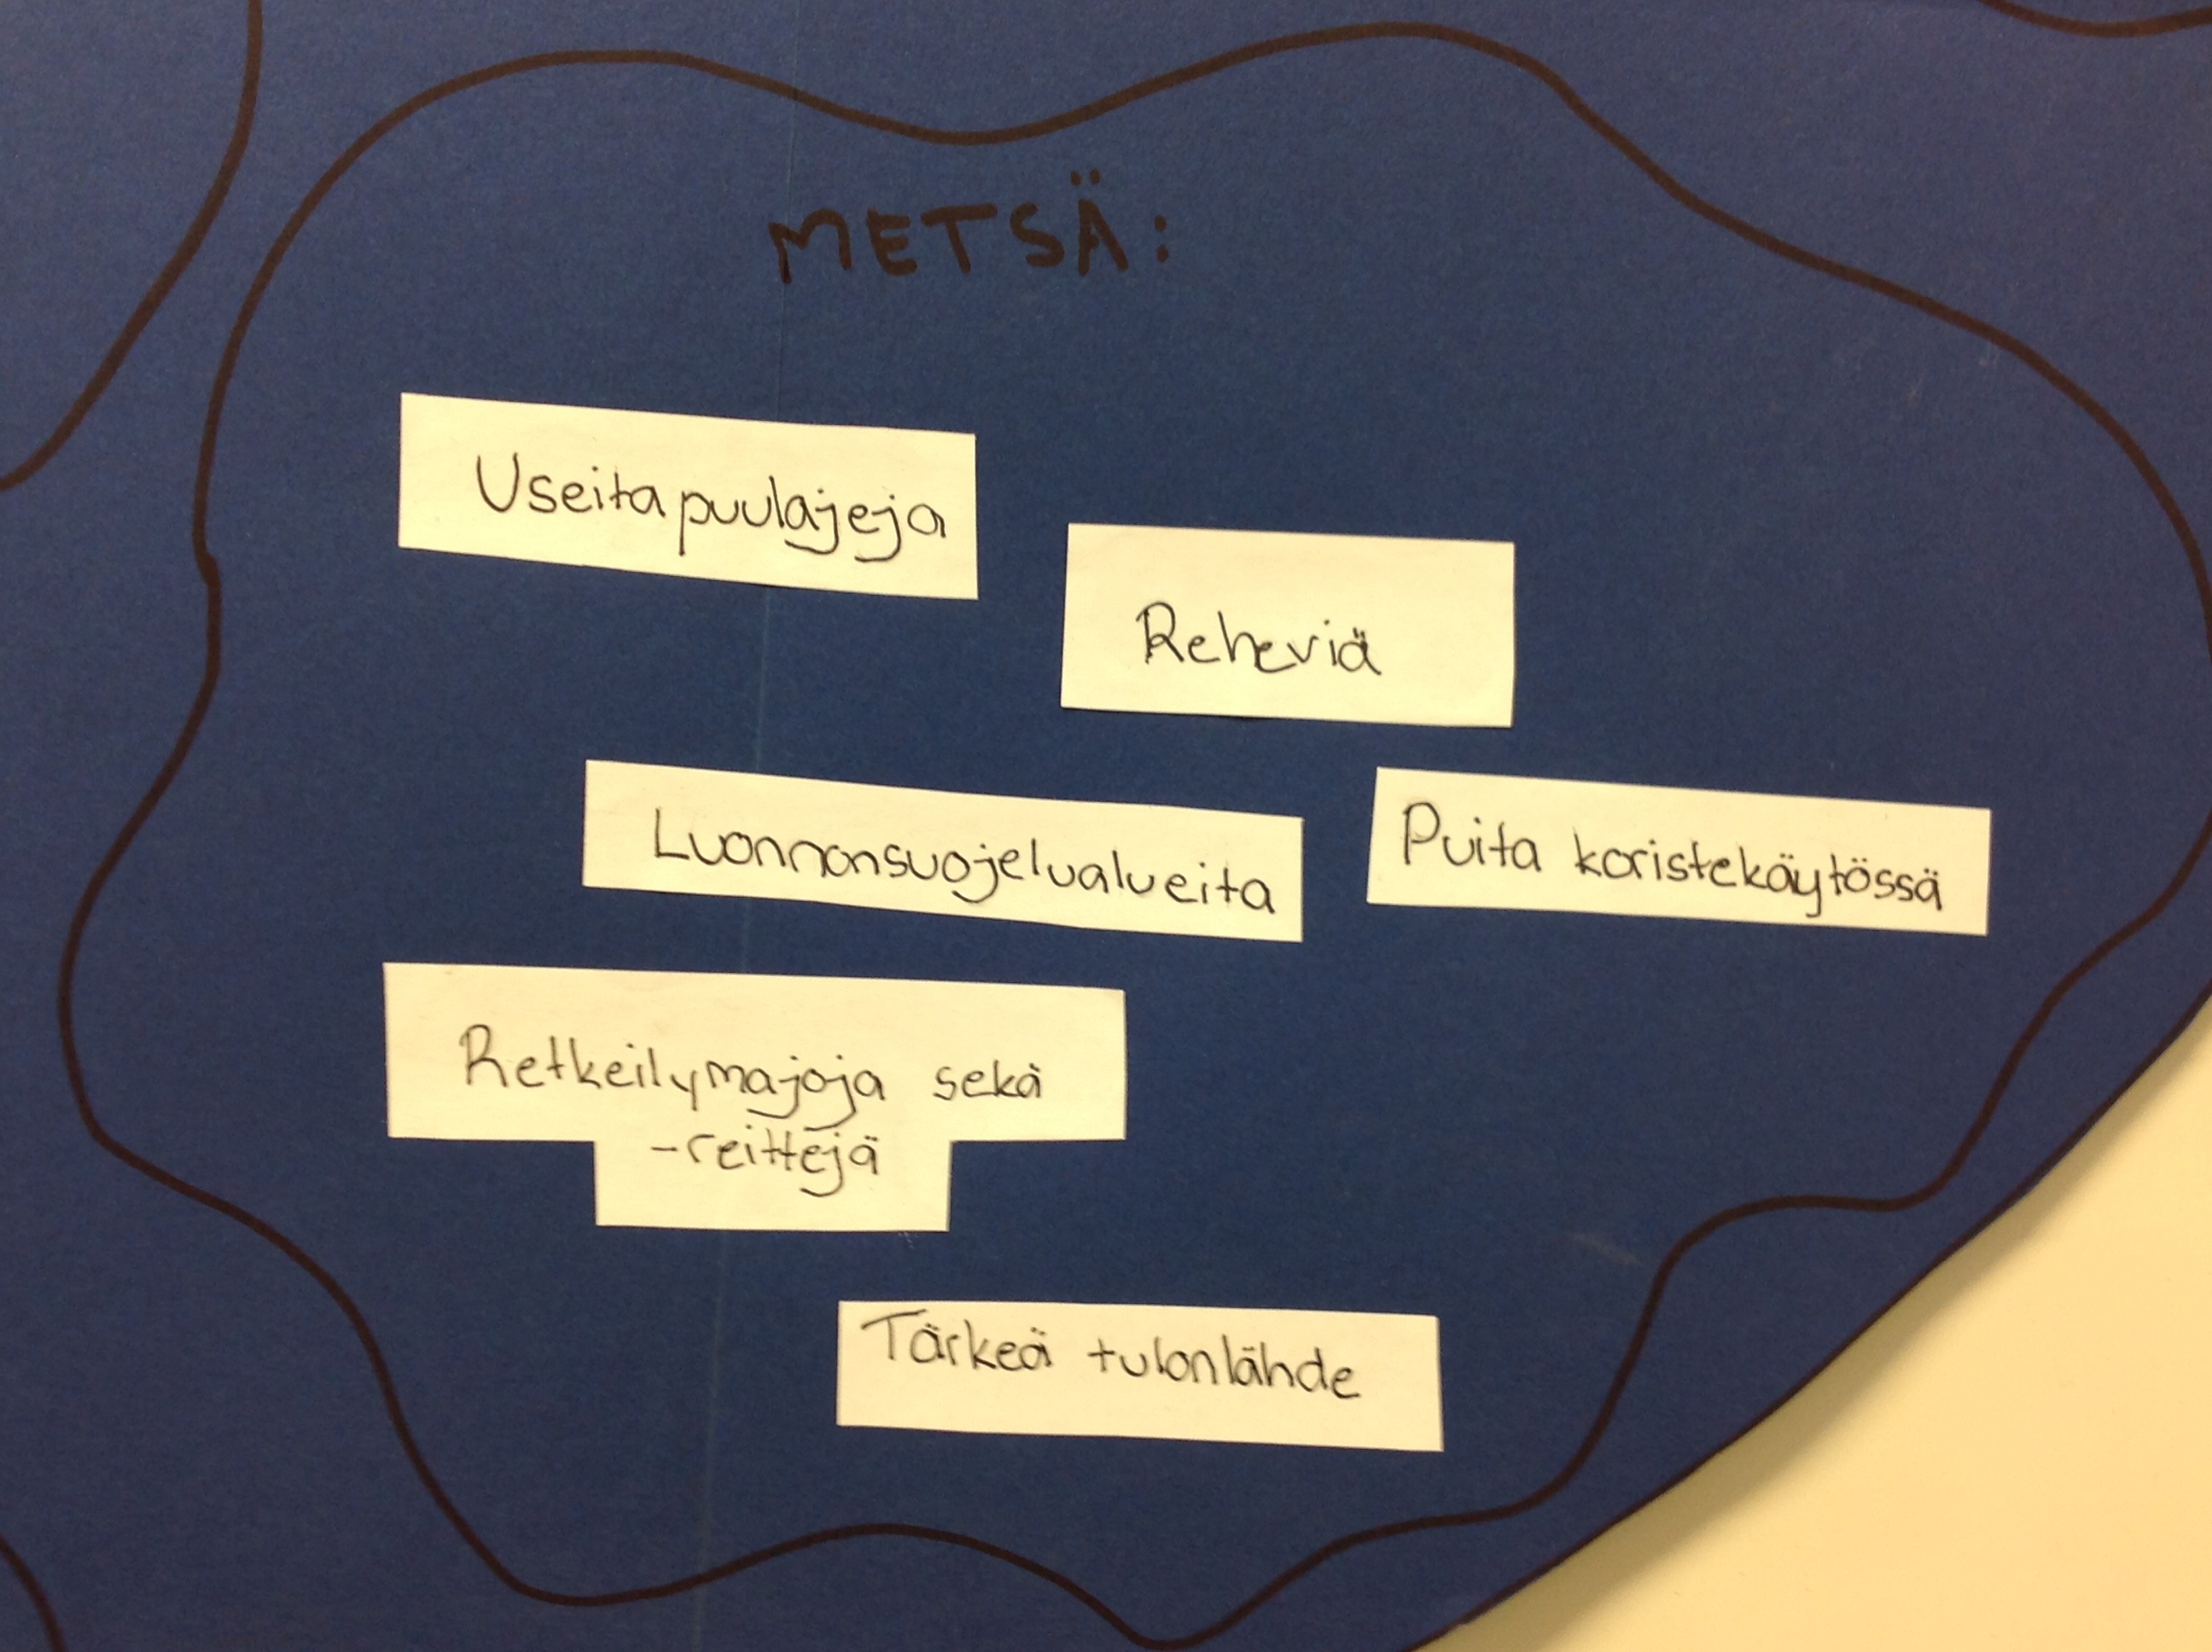 METSÄ:
Useita puulajeja
Reheviä
Luonnonsuojelualueita
Puita koristekäytössä
Retkeilymajoja sekä
-reittejä
Tärkeä tulonlähde